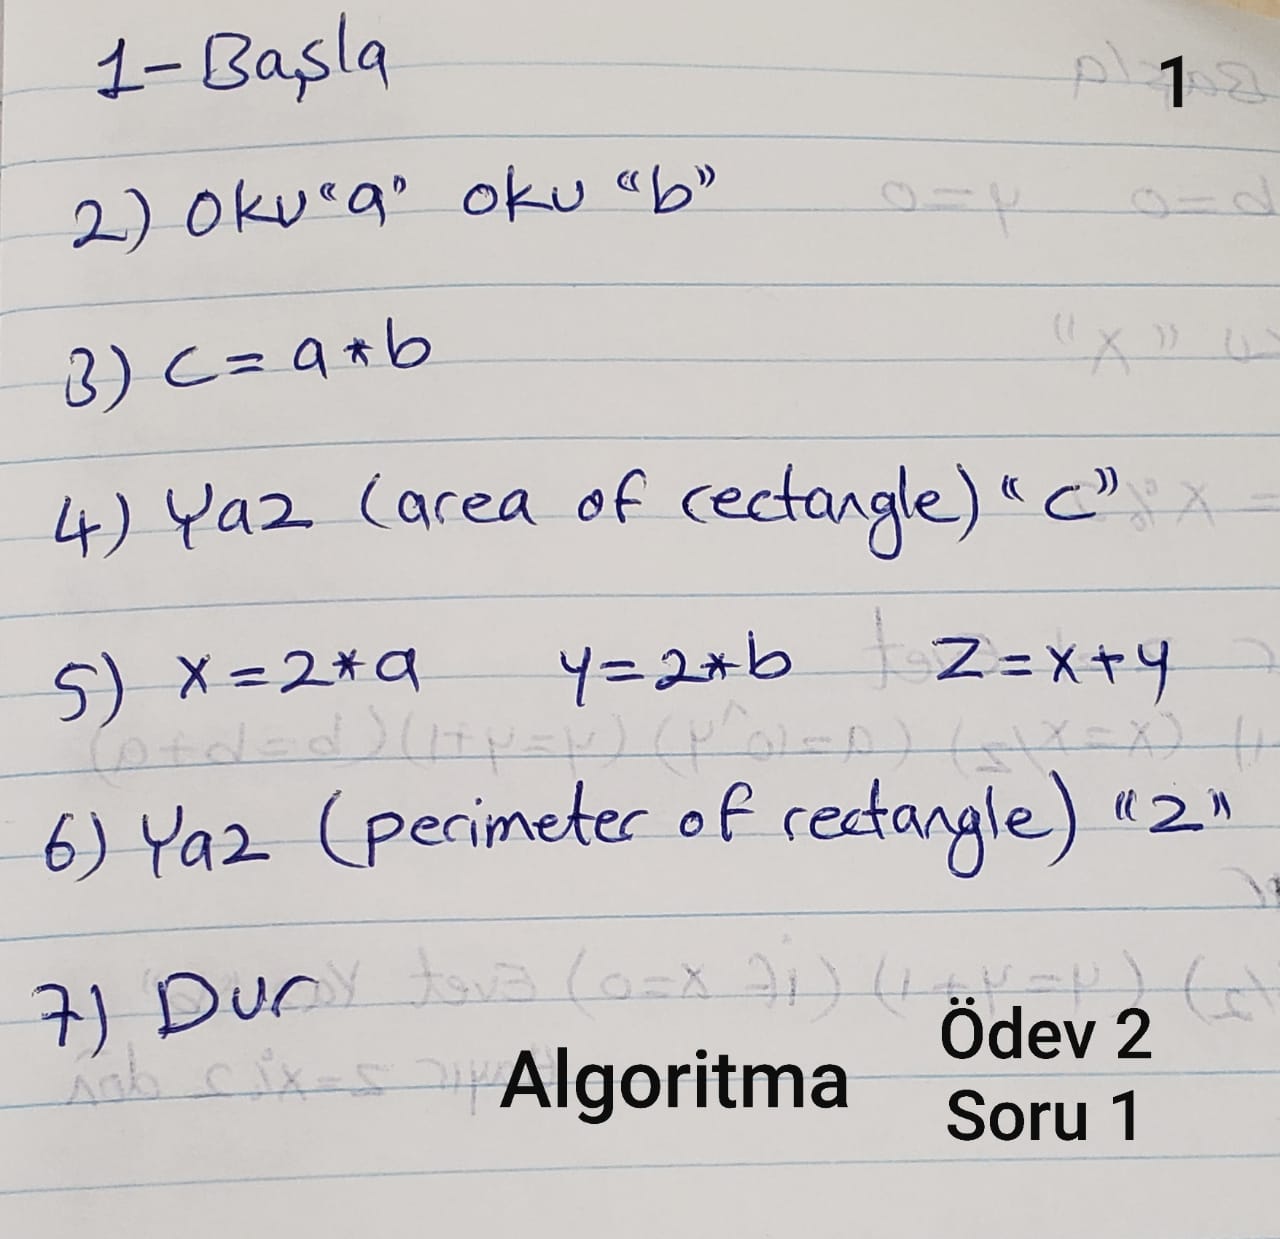 1-Başla
1
2) Oku "a" oku "b"
3) c = a*b
4) Yaz (area of rectangle) "c"
5) x=2*a y=2*b z=x+y
6) Yaz (perimeter of rectangle) "z"
7) Dur
Algoritma
Ödev 2
Soru 1